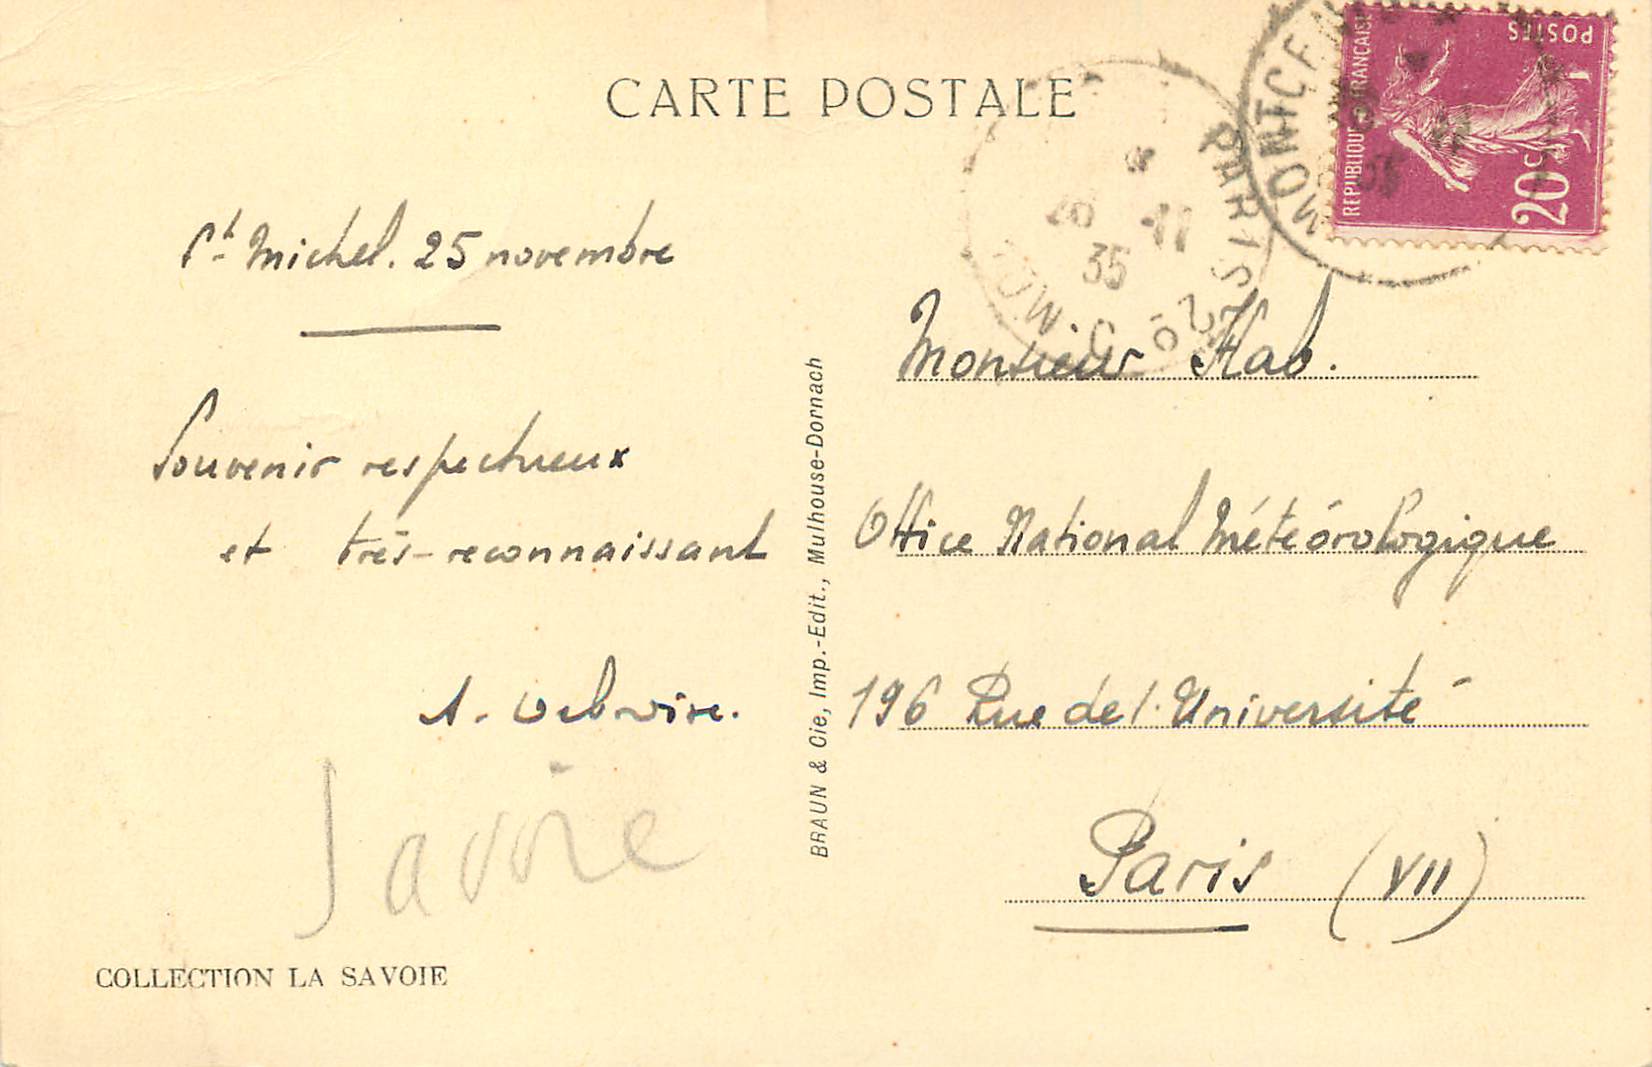 CARTE POSTALE
REPUBLIQUE FRANÇAISE
POSTES
20c
MONTCEN
PARIS
26 -11
35
St Michel. 25 novembre
Souvenir respectueux
et très-reconnaissant
Savoie
COLLECTION LA SAVOIE
BRAUN & Cie, Imp.-Edit., Mulhouse-Dornach
Monsieur Hab.
Office National Météorologique
196 Rue de l'Université
Paris (VII)